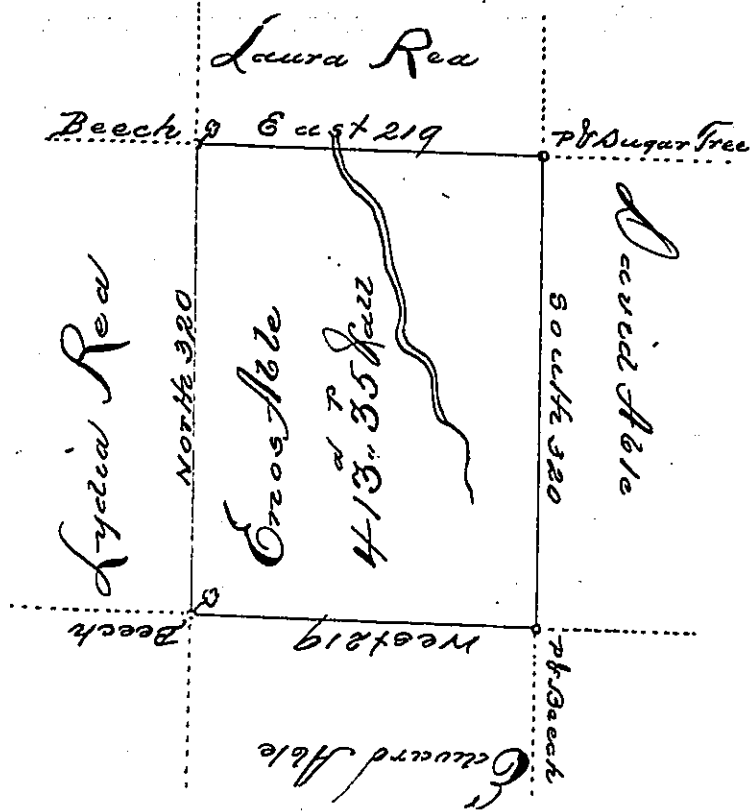 Laura Rea
Beech
East 219
P& Sugar Tree
Lydia Rea
North 320
Enos Able
a P
413..35
South 320
David Able
Beech
West 219
P& Beech
Edward Able